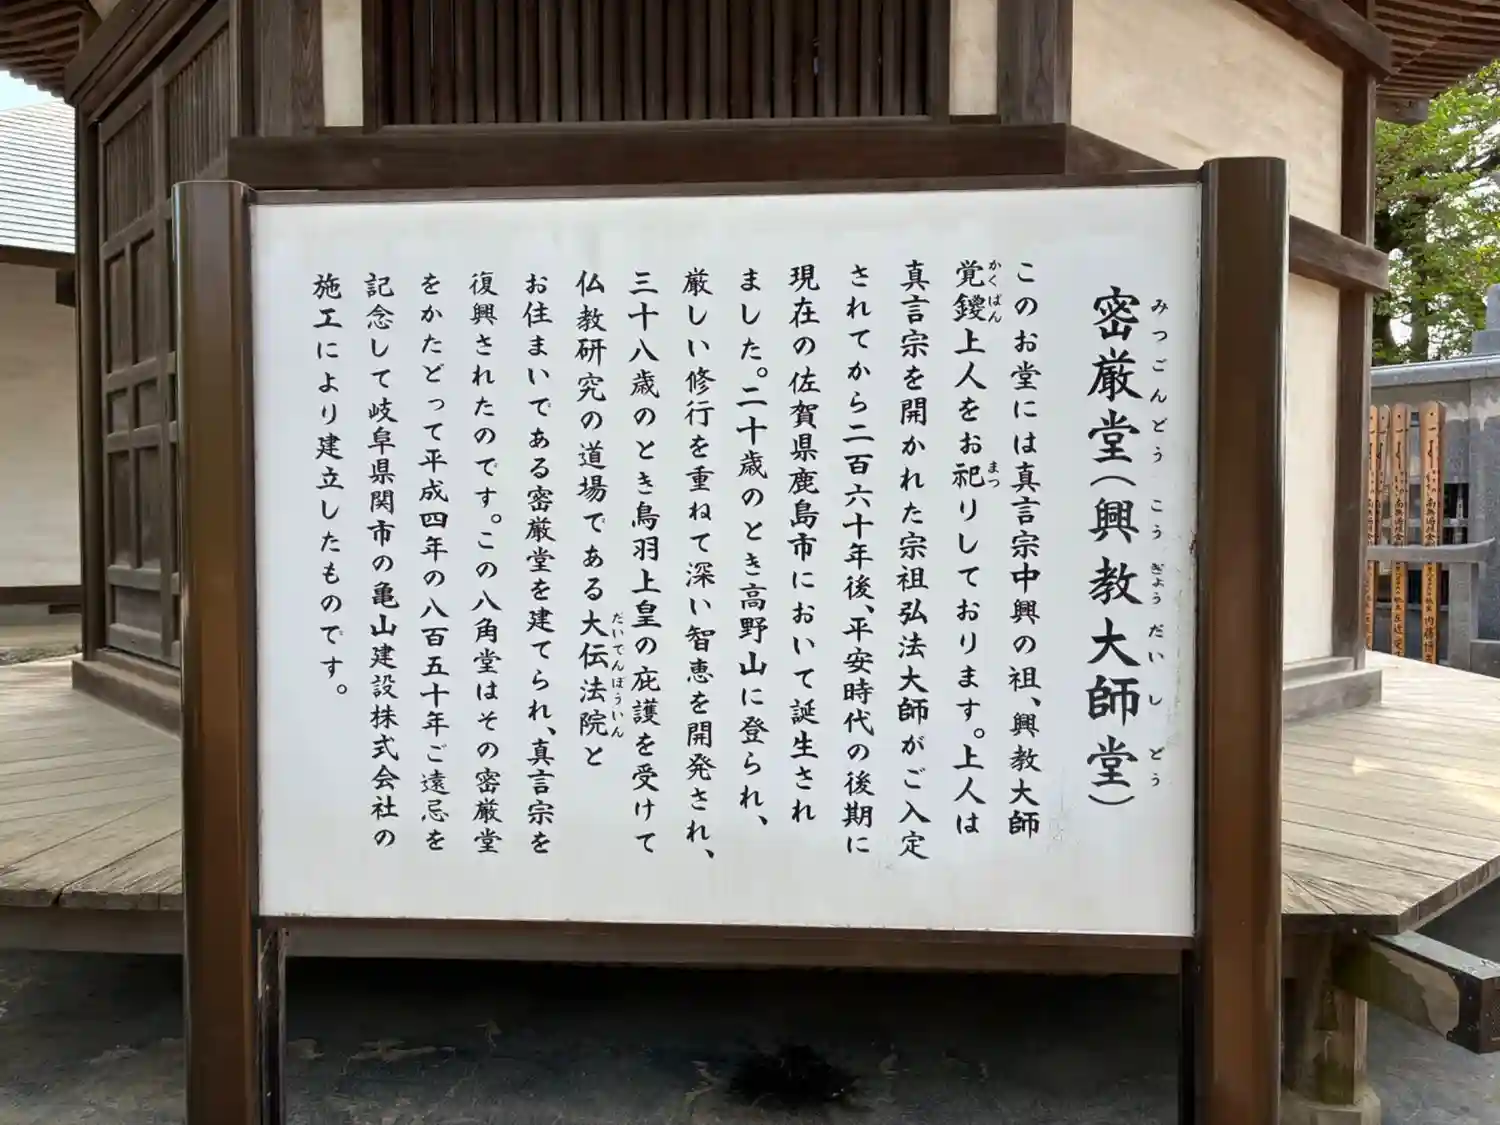 密厳堂(興教大師堂)
みつごんどう こうぎょうだいしどう
このお堂には真言宗中興の祖、興教大師
覚鑁上人をお祀りしております。上人は
かくばん まつ
真言宗を開かれた宗祖弘法大師がご入定
されてから二百六十年後、平安時代の後期に
現在の佐賀県鹿島市において誕生され
ました。二十歳のとき高野山に登られ、
厳しい修行を重ねて深い智恵を開発され、
三十八歳のとき鳥羽上皇の庇護を受けて
仏教研究の道場である大伝法院と
だいでんぼういん
お住まいである密厳堂を建てられ、真言宗を
復興されたのです。この八角堂はその密厳堂
をかたどって平成四年の八百五十年ご遠忌を
記念して岐阜県関市の亀山建設株式会社の
施工により建立したものです。